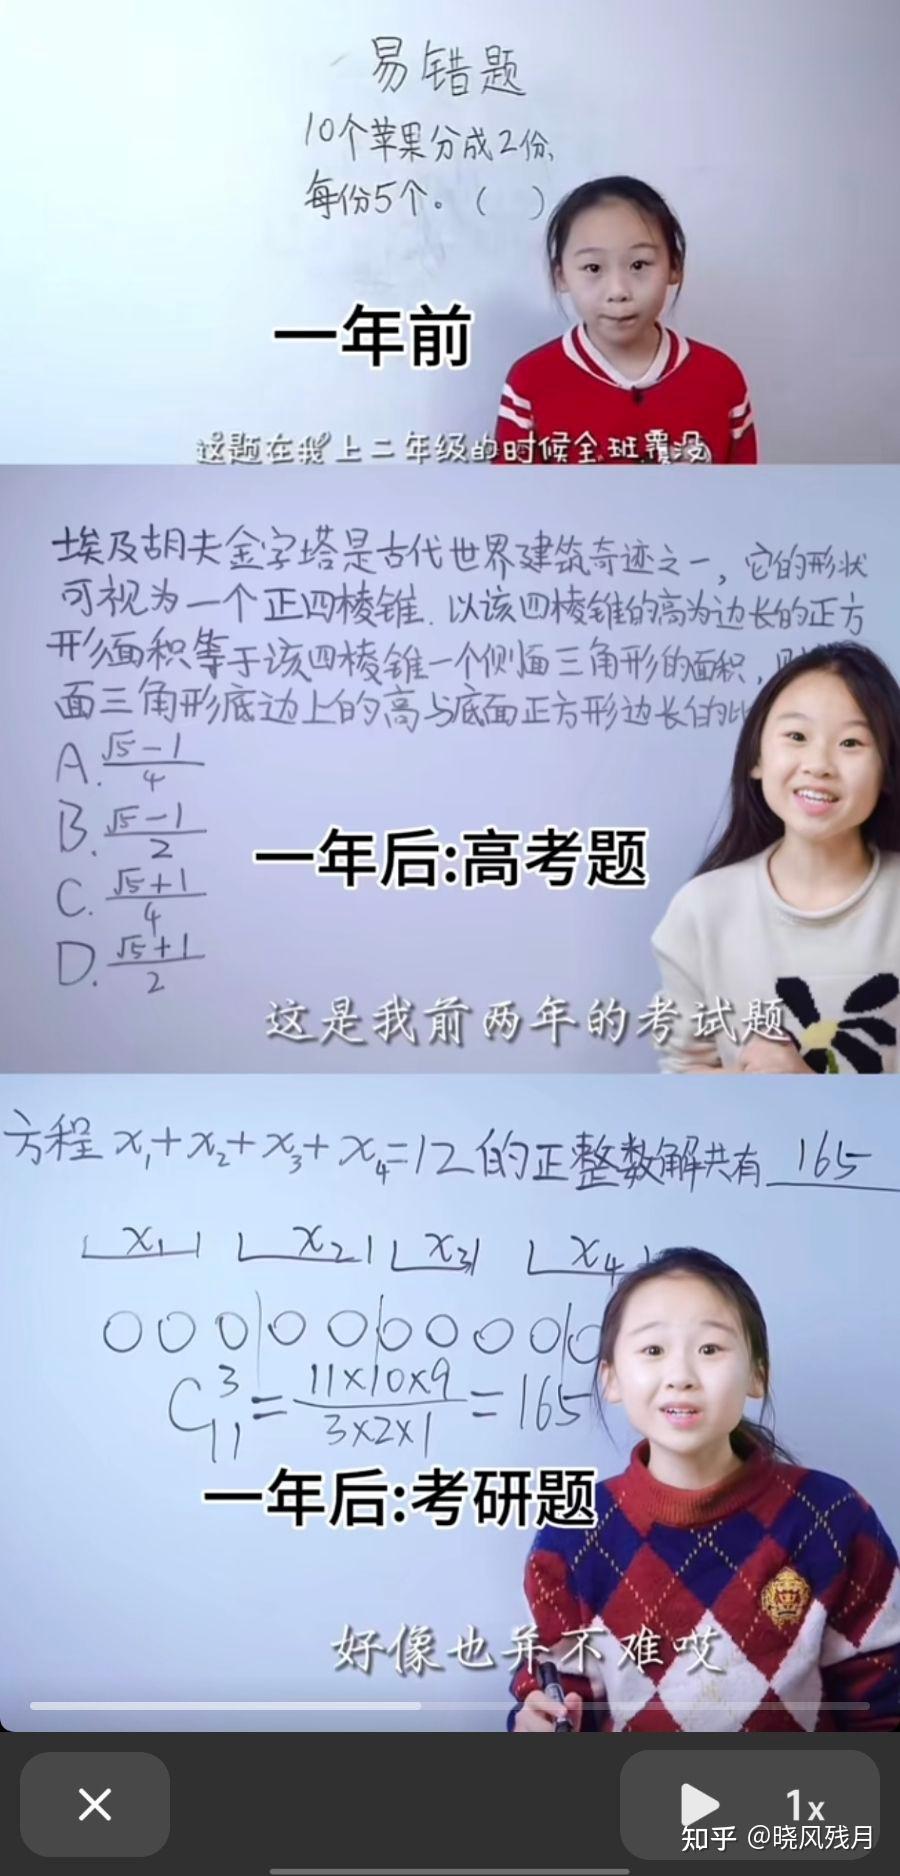 易错题
10个苹果分成2份,
每份5个。( )
一年前
这题在我上二年级的时候全班覆没
埃及胡夫金字塔是古代世界建筑奇迹之一，它的形状
可视为一个正四棱锥.以该四棱锥的高为边长的正方
形面积等于该四棱锥一个侧面三角形的面积，
面三角形底边上的高与底面正方形边长的比
A. (√5-1)/4
B. (√5-1)/2
C. (√5+1)/4
D. (√5+1)/2
一年后:高考题
这是我前两年的考试题
方程 x₁+x₂+x₃+x₄=12的正整数解共有 165
x₁ x₂ x₃ x₄
C₁₁³ = (11×10×9)/(3×2×1) = 165
一年后:考研题
好像也并不难哎
1x
知乎 @晓风残月